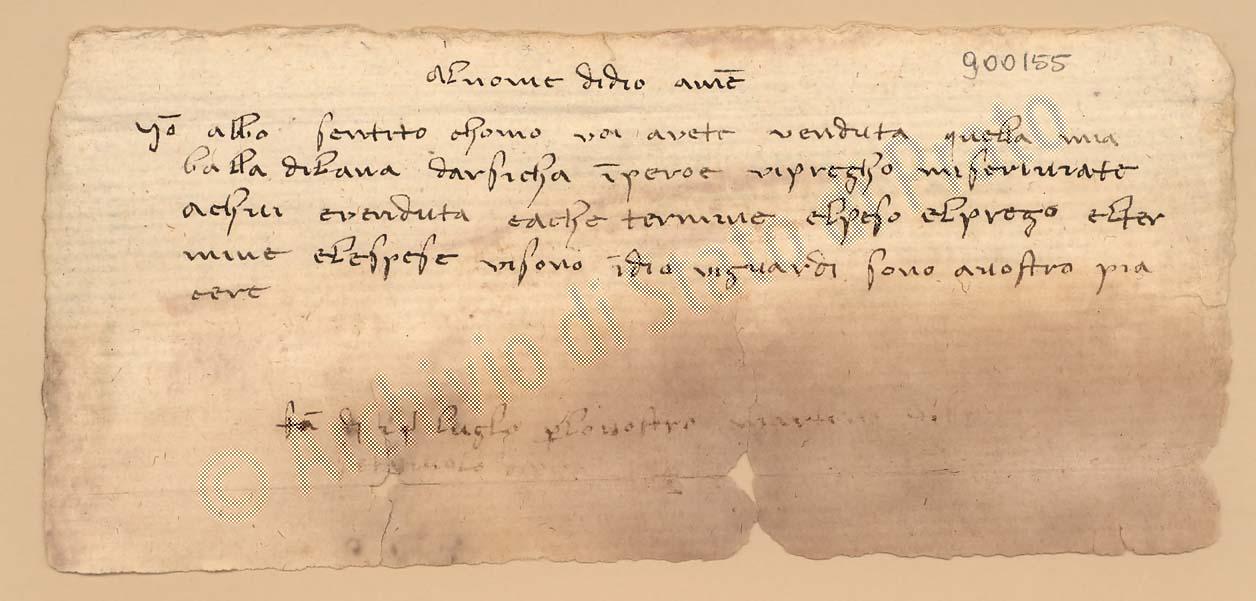 900155
Al nome didio amē
Yō abbo sentito chomo voi avete venduta quella mia
balla dilana darsicha īperoe vipregho miscriviate
achui evenduta eache termine elpeso elprego elter
mine elespese visono īdio viguardi sono avostro pia
cere
fā dì lugl plovostro
© Archivio di Stato di Prato